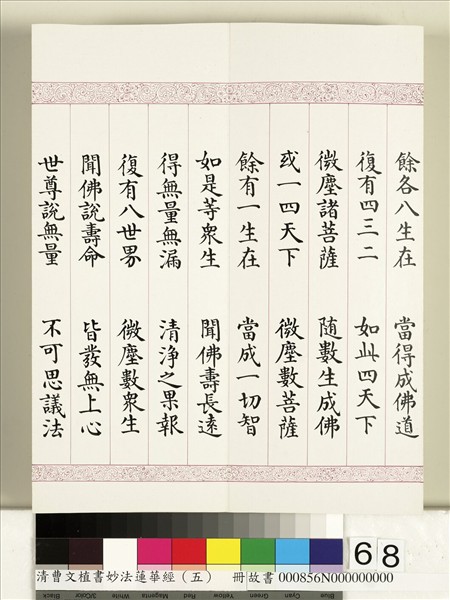 餘各八生在　當得成佛道
復有四三二　如此四天下
微塵諸菩薩　隨數生成佛
或一四天下　微塵數菩薩
餘有一生在　當成一切智
如是等眾生　聞佛壽長遠
得無量無漏　清淨之果報
復有八世界　微塵數眾生
聞佛說壽命　皆發無上心
世尊說無量　不可思議法
68
清曹文植書妙法蓮華經（五）　冊故書 000856N000000000
Black 3/Color White Magenta Red Yellow Green Cyan Blue